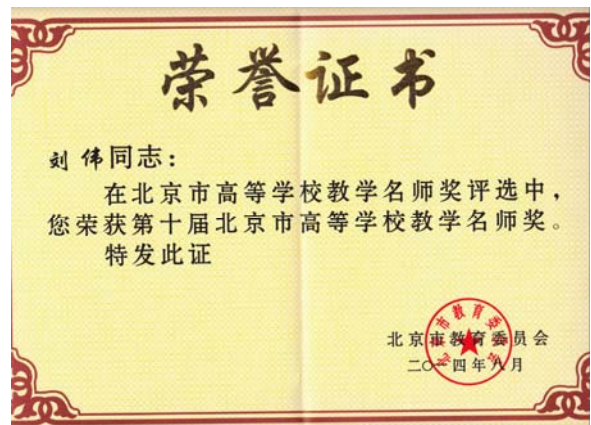 荣誉证书
刘伟同志：
在北京市高等学校教学名师奖评选中，
您荣获第十届北京市高等学校教学名师奖。
特发此证
北京市教育委员会
二〇一四年八月
北京市教育委员会